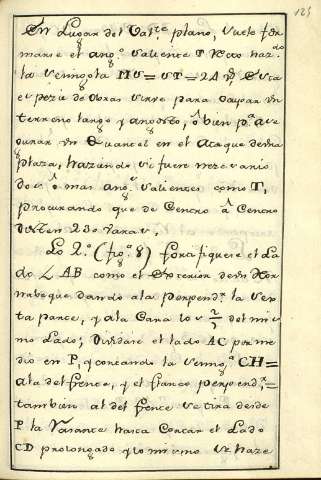 125
En Lugar del Vaste. plano, suele for
marse el angº. Valiente T Recto hazdo.
la Semigola MV=VT=2A Esta
especie de obras sirve para ocupar un
terreno largo y angosto, ô bien pª. ase
gurar un Quartel en el Ataque de una
plaza, haziendo si fuere necesario
dos ô mas angs. Valientes como T,
procurando que de Centro â Centro
disten 230 varas,
Lo 2.º (figª. 8) fortifiquese el La
do LAB como el Exterior de un Hor
nabeque dando ala perpendr. la Sex
ta parte, y ala Cara los 2/7 del mis
mo Lado; Dividase el lado AC por me
dio en P, y cortando la Semigª. CH=
ala del frente, y el flanco perpendr. =
tambien al del frente se tira desde
P la Rasante hasta Cortar el Lado
CD prolongado y lo mismo se haze